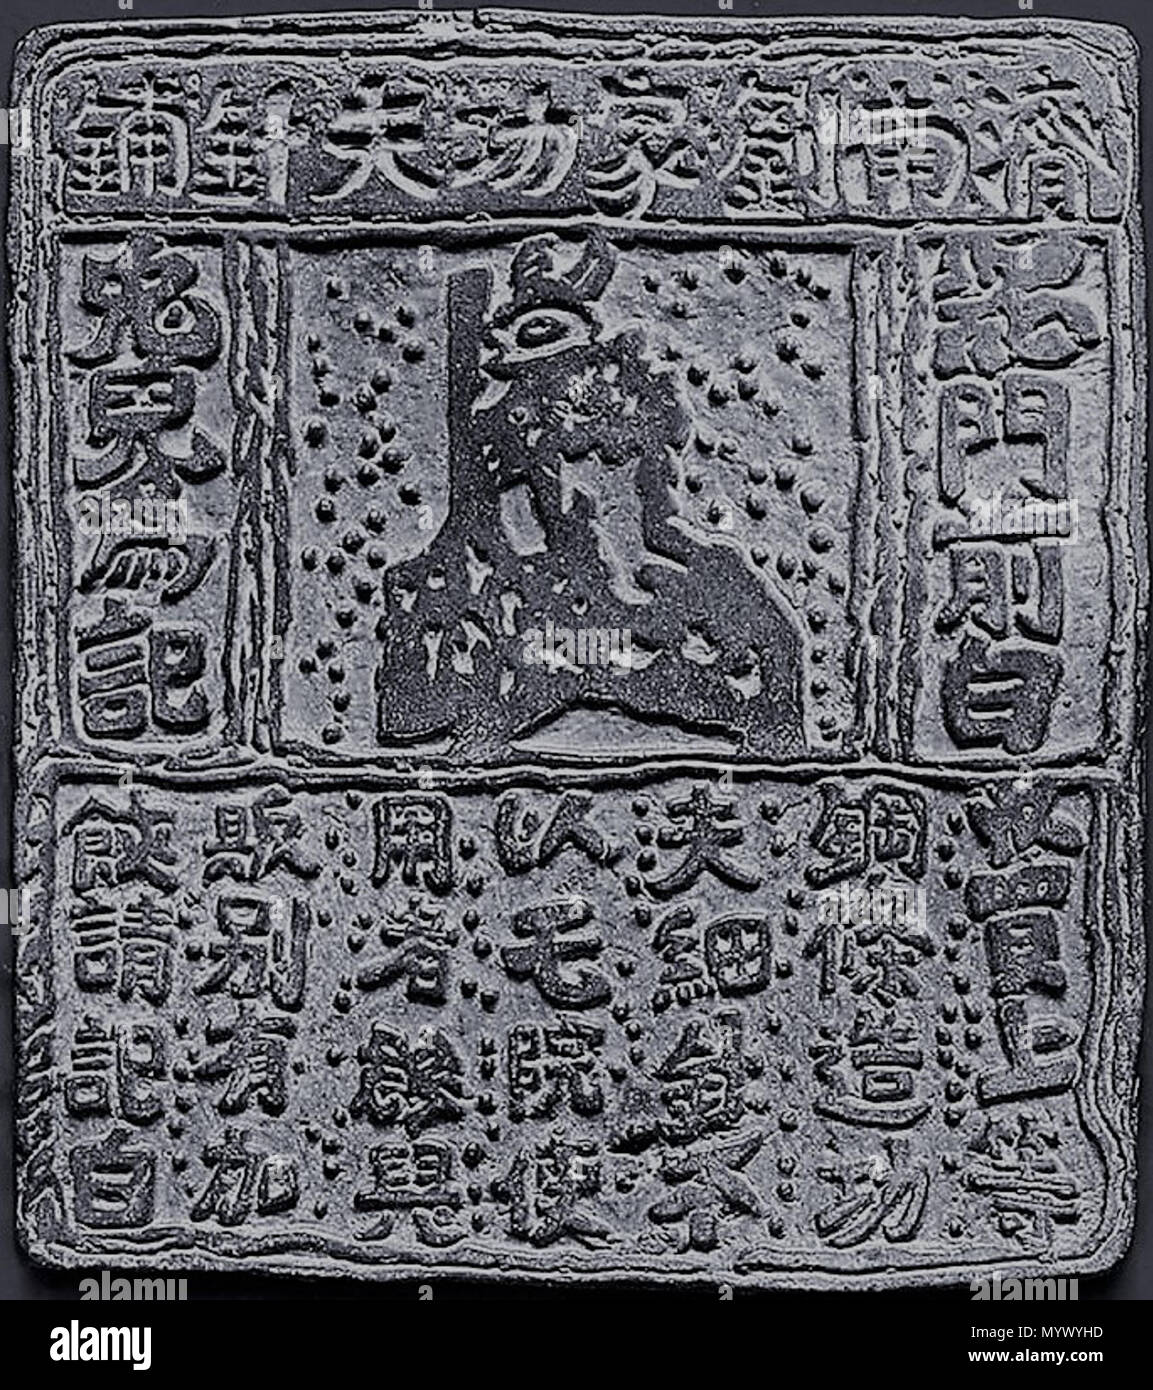 濟南劉家功夫針鋪
認門前白
兔兒為記
收買上等
鋼條造功
夫細針不
誤宅院使
用轉賣興
販別有加
饒請記白
alamy
Image ID: MYWYHD
www.alamy.com